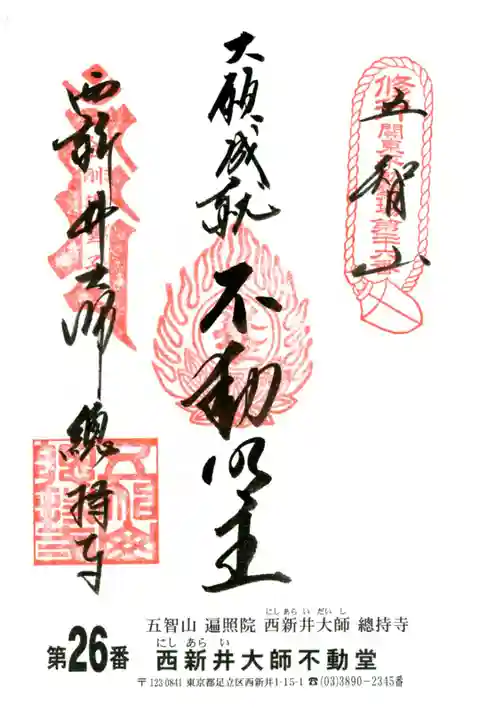 五智山
大願成就 不動明王
西新井大師 總持寺
五智山 遍照院 西新井大師 總持寺
にしあらいだいし
第26番 西新井大師不動堂
にしあらい
〒123-0841 東京都足立区西新井1-15-1 ☎(03)3890-2345番